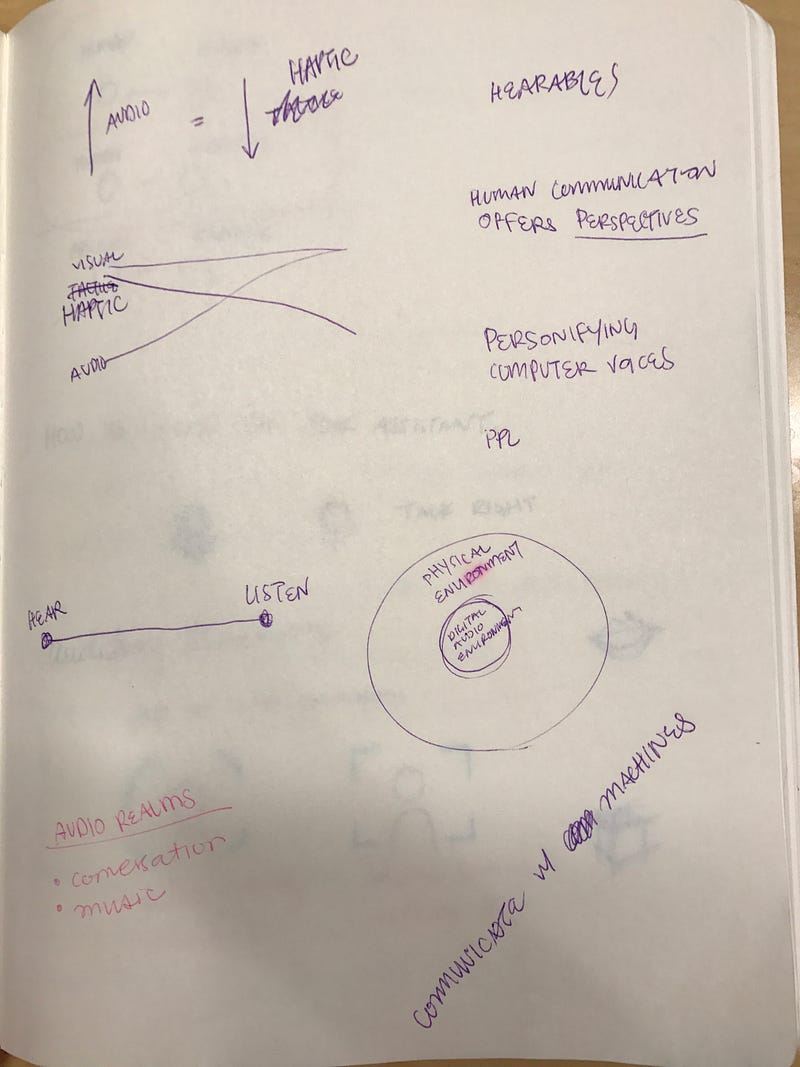 AUDIO
=
HAPTIC
HEARABLES
HUMAN COMMUNICATION
OFFERS PERSPECTIVES
VISUAL
TACTILE
HAPTIC
AUDIO
PERSONIFYING
COMPUTER VOICES
PPL
HEAR
LISTEN
PHYSICAL
ENVIRONMENT
DIGITAL
AUDIO
ENVIRONMENT
AUDIO REALMS
• conversation
• music
COMMUNICATE W/ MACHINES